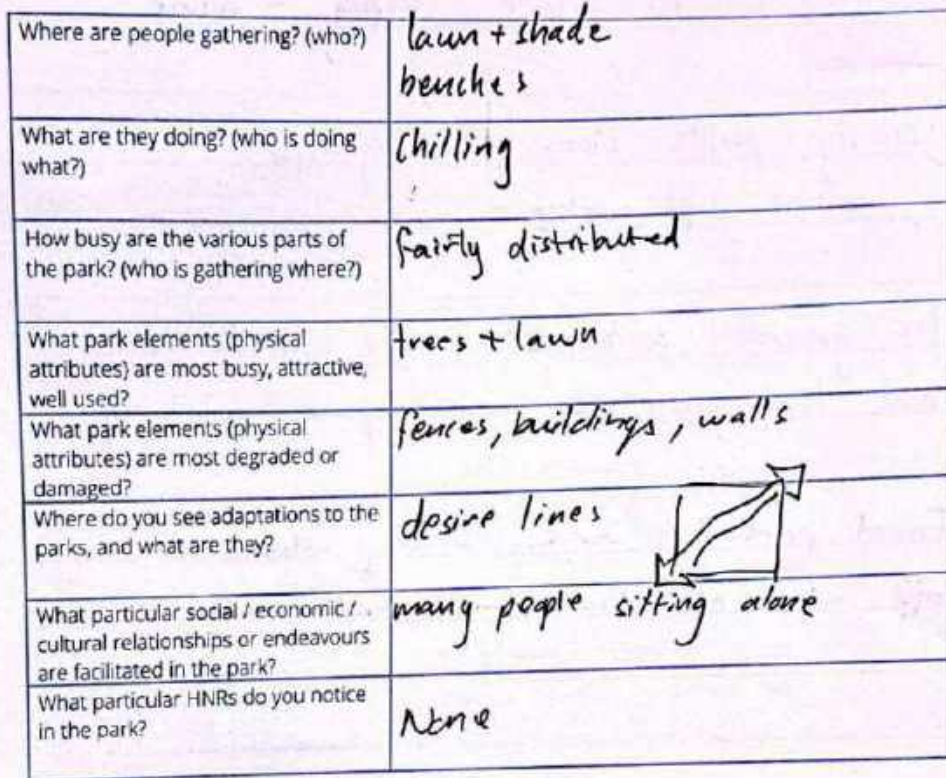 Where are people gathering? (who?)
lawn + shade
benches
What are they doing? (who is doing
what?)
Chilling
How busy are the various parts of
the park? (who is gathering where?)
fairly distributed
What park elements (physical
attributes) are most busy, attractive,
well used?
trees + lawn
What park elements (physical
attributes) are most degraded or
damaged?
fences, buildings, walls
Where do you see adaptations to the
parks, and what are they?
desire lines
What particular social / economic /
cultural relationships or endeavours
are facilitated in the park?
many people sitting alone
What particular HNRs do you notice
in the park?
None